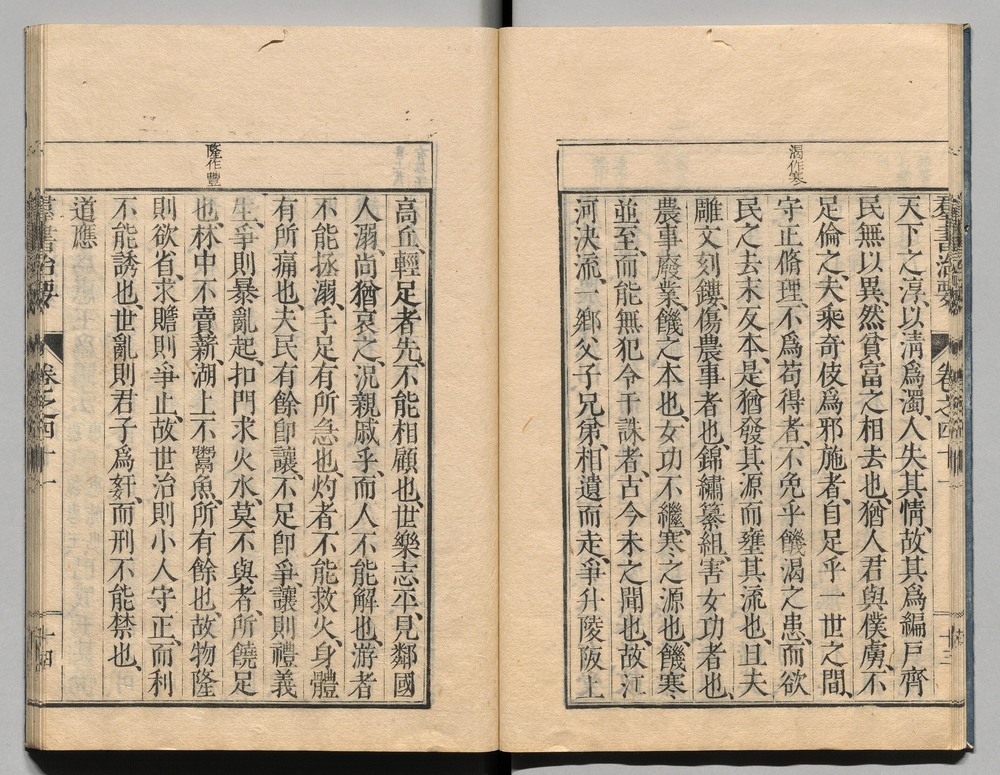 渴作寒
群書治要 卷之四十一 十三
天下之淳、以淸爲濁、人失其情、故其爲編戸齊
民無以異、然貧富之相去也、猶人君與僕虜、不
足倫之、夫乘奇伎爲邪施者、自足乎一世之間、
守正脩理、不爲苟得者、不免乎饑渴之患、而欲
民之去末反本、是猶發其源而壅其流也、且夫
雕文刻鏤、傷農事者也、錦繡纂組、害女功者也、
農事廢業、饑之本也、女功不繼、寒之源也、饑寒
並至、而能無犯令干誅者、古今未之聞也、故江
河決流、一鄉父子兄弟、相遺而走、爭升陵阪、上
隆作豐
高丘、輕足者先、不能相顧也、世樂志平、見鄰國
人溺、尚猶哀之、況親戚乎、而人不能解也、游者
不能拯溺、手足有所急也、灼者不能救火、身體
有所痛也、夫民有餘卽讓、不足卽爭、讓則禮義
生、爭則暴亂起、扣門求火水、莫不與者、所饒足
也、林中不賣薪、湖上不鬻魚、所有餘也、故物隆
則欲省、求贍則爭止、故世治則小人守正、而利
不能誘也、世亂則君子爲姧、而刑不能禁也、
道應
群書治要 卷之四十一 十四